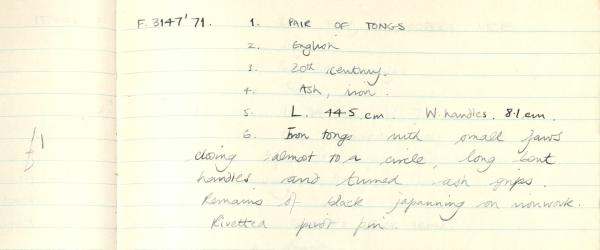 F. 3147'71. 1. PAIR OF TONGS
2. English
3. 20th century.
4. Ash, iron.
5. L. 44.5 cm. W. handles. 8.1 cm.
6. Iron tongs with small jaws
closing almost to a circle, long bent
handles and turned ash grips.
Remains of black japanning on ironwork.
Rivetted pivot pin